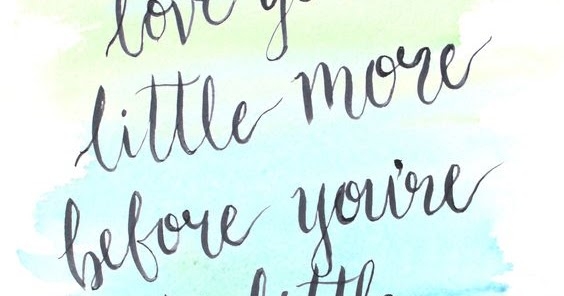 love
little more
before you're
little